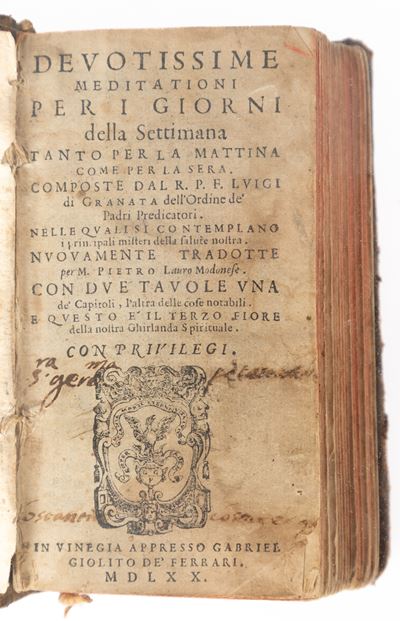 DEVOTISSIME
MEDITATIONI
PER I GIORNI
della Settimana
TANTO PER LA MATTINA
COME PER LA SERA.
COMPOSTE DAL R. P. F. LVIGI
di GRANATA dell'Ordine de'
Padri Predicatori.
NELLE QVALI SI CONTEMPLANO
i prin. ipali misteri della salute nostra.
NVOVAMENTE TRADOTTE
per M. PIETRO Lauro Modonese.
CON DVE TAVOLE VNA
de' Capitoli, l'altra delle cose notabili.
E QVESTO E' IL TERZO FIORE
della nostra Ghirlanda Spirituale.
CON PRIVILEGI.
IN VINEGIA APPRESSO GABRIEL
GIOLITO DE' FERRARI.
MDLXX.